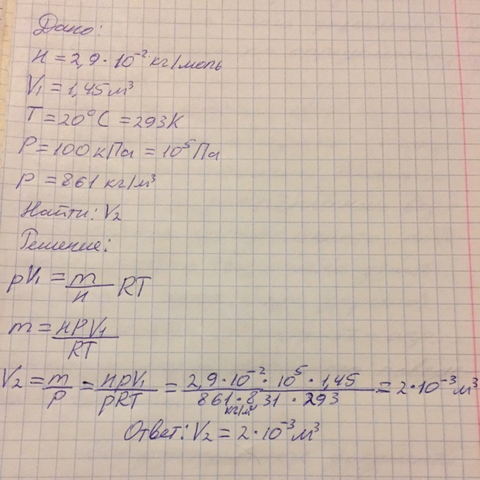 Дано:
M = 2,9 · 10⁻² кг/моль
V₁ = 1,45 м³
T = 20°C = 293K
P = 100 кПа = 10⁵ Па
ρ = 861 кг/м³
Найти: V₂
Решение:
pV₁ = m/M RT
m = MPV₁/RT
V₂ = m/ρ = MpV₁/ρRT = 2,9 · 10⁻² · 10⁵ · 1,45 / 861 кг/м³ · 831 · 293 = 2 · 10⁻³ м³
Ответ: V₂ = 2 · 10⁻³ м³